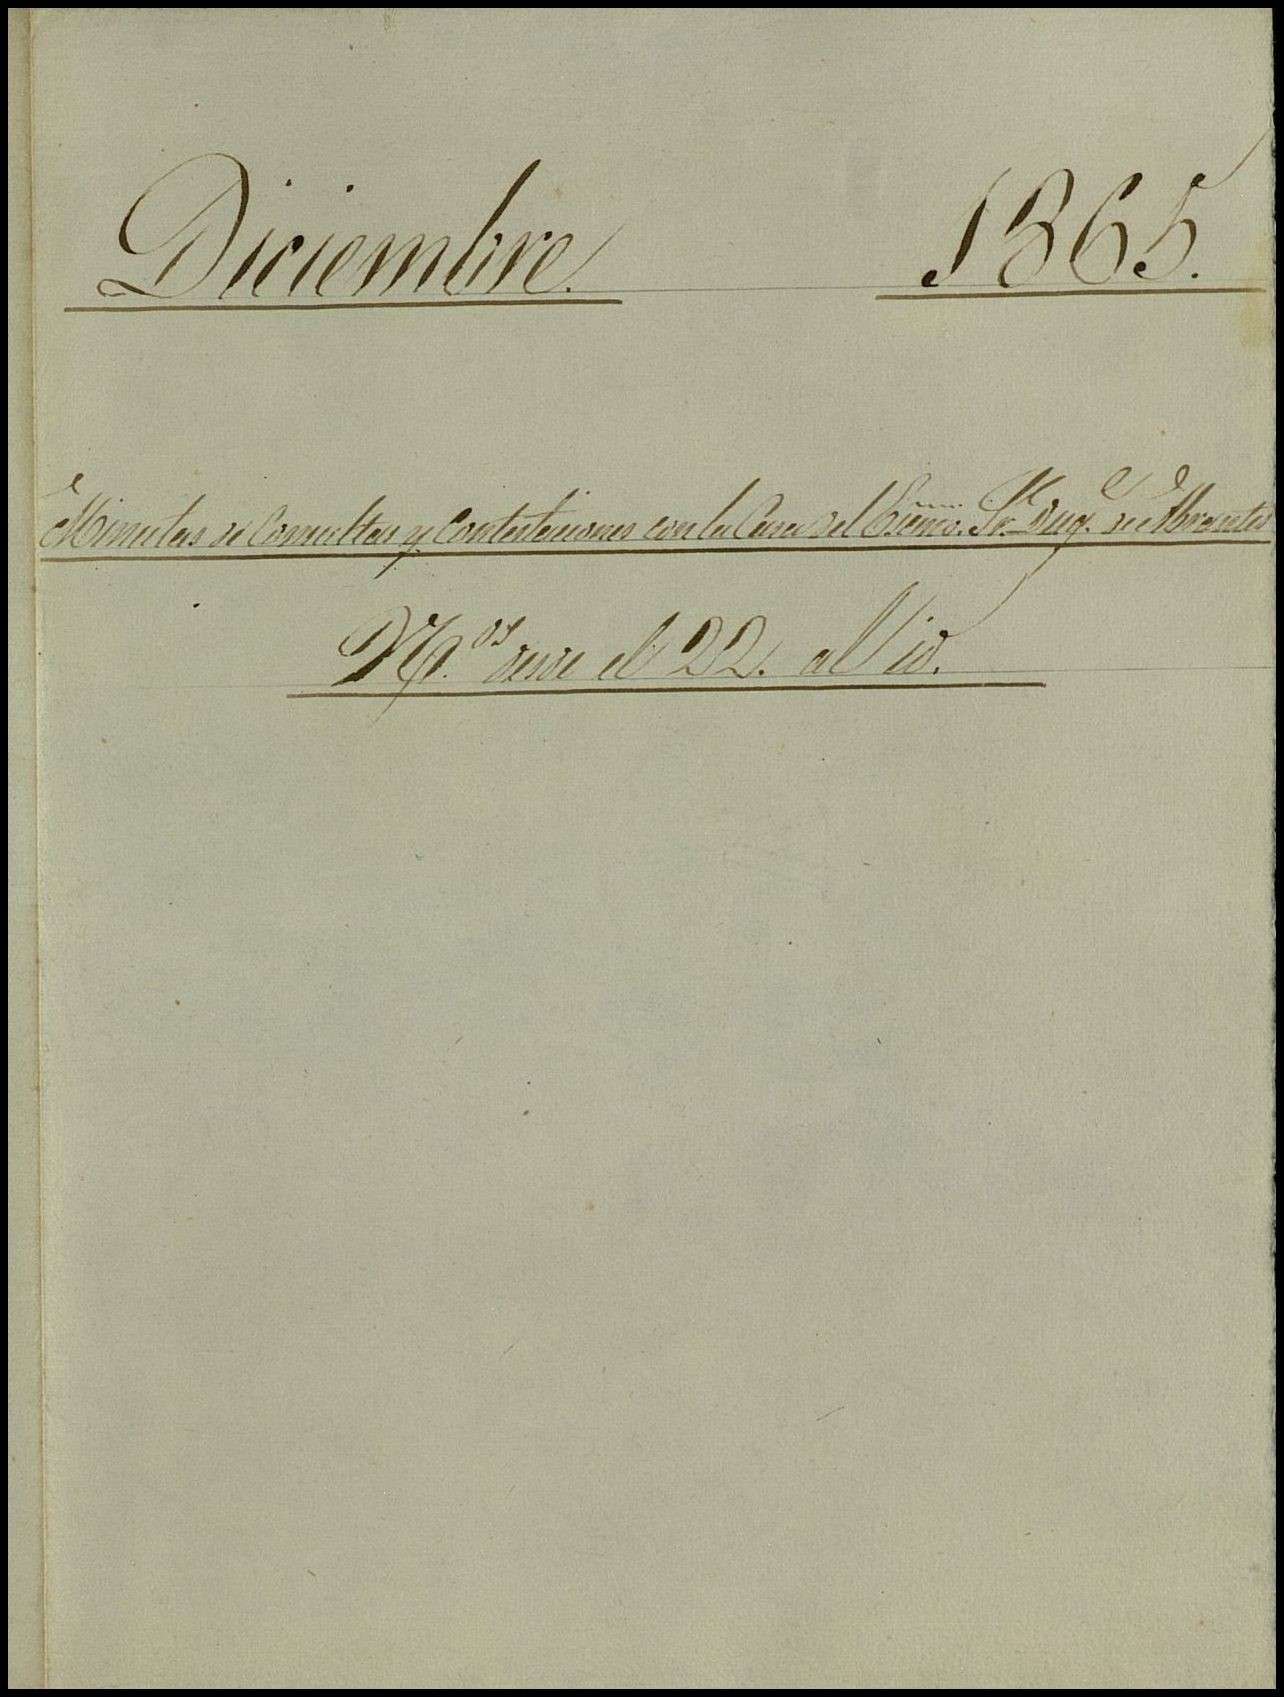 Diciembre. 1865.
Minutas de Consultas y Contestaciones con la Casa del Excmo. Sr. Duq.e de Abrantes
N.os desde el 22. al id.